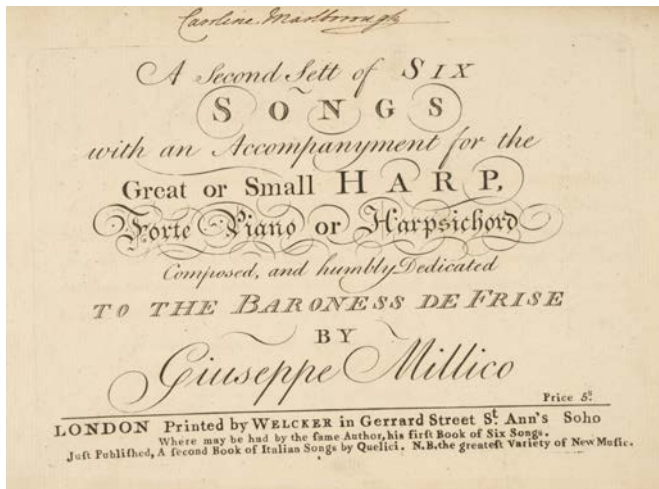 Caroline Marlborough
A Second Sett of SIX
SONGS
with an Accompanyment for the
Great or Small HARP,
Forte Piano or Harpsichord
Composed, and humbly Dedicated
TO THE BARONESS DE FRISE
BY
Giuseppe Millico
Price 5s.
LONDON Printed by WELCKER in Gerrard Street St. Ann's Soho
Where may be had by the same Author, his first Book of Six Songs.
Just Published, A second Book of Italian Songs by Quelici. N.B. the greatest Variety of New Music.